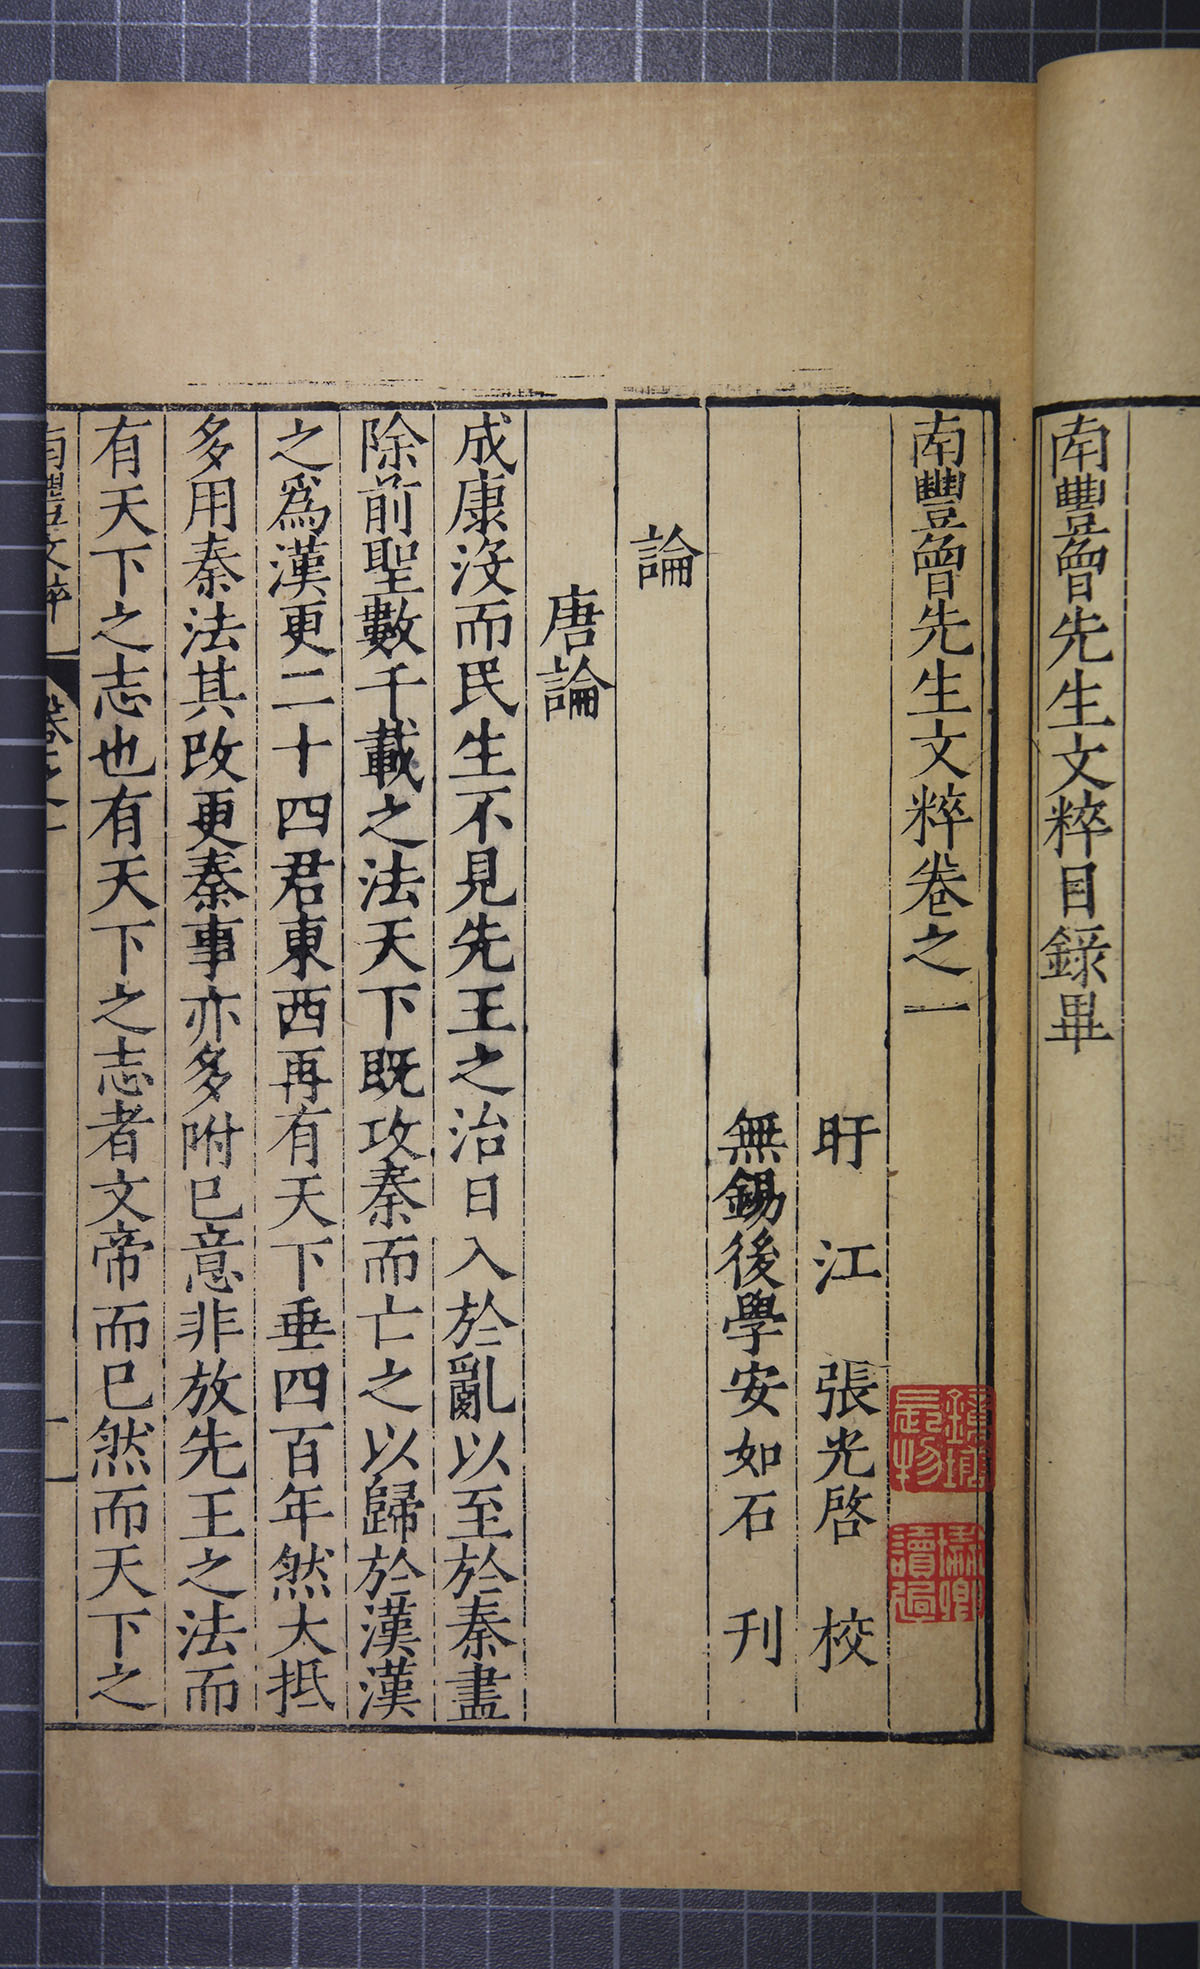 南豐曾先生文粹目錄畢
南豐曾先生文粹卷之一
盱江 張光啓 校
無錫後學安如石 刊
論
唐論
成康沒而民生不見先王之治日入於亂以至於秦盡
除前聖數千載之法天下既攻秦而亡之以歸於漢漢
之爲漢更二十四君東西再有天下垂四百年然大抵
多用秦法其改更秦事亦多附已意非放先王之法而
有天下之志也有天下之志者文帝而已然而天下之
南豐文粹 卷之一
讀過